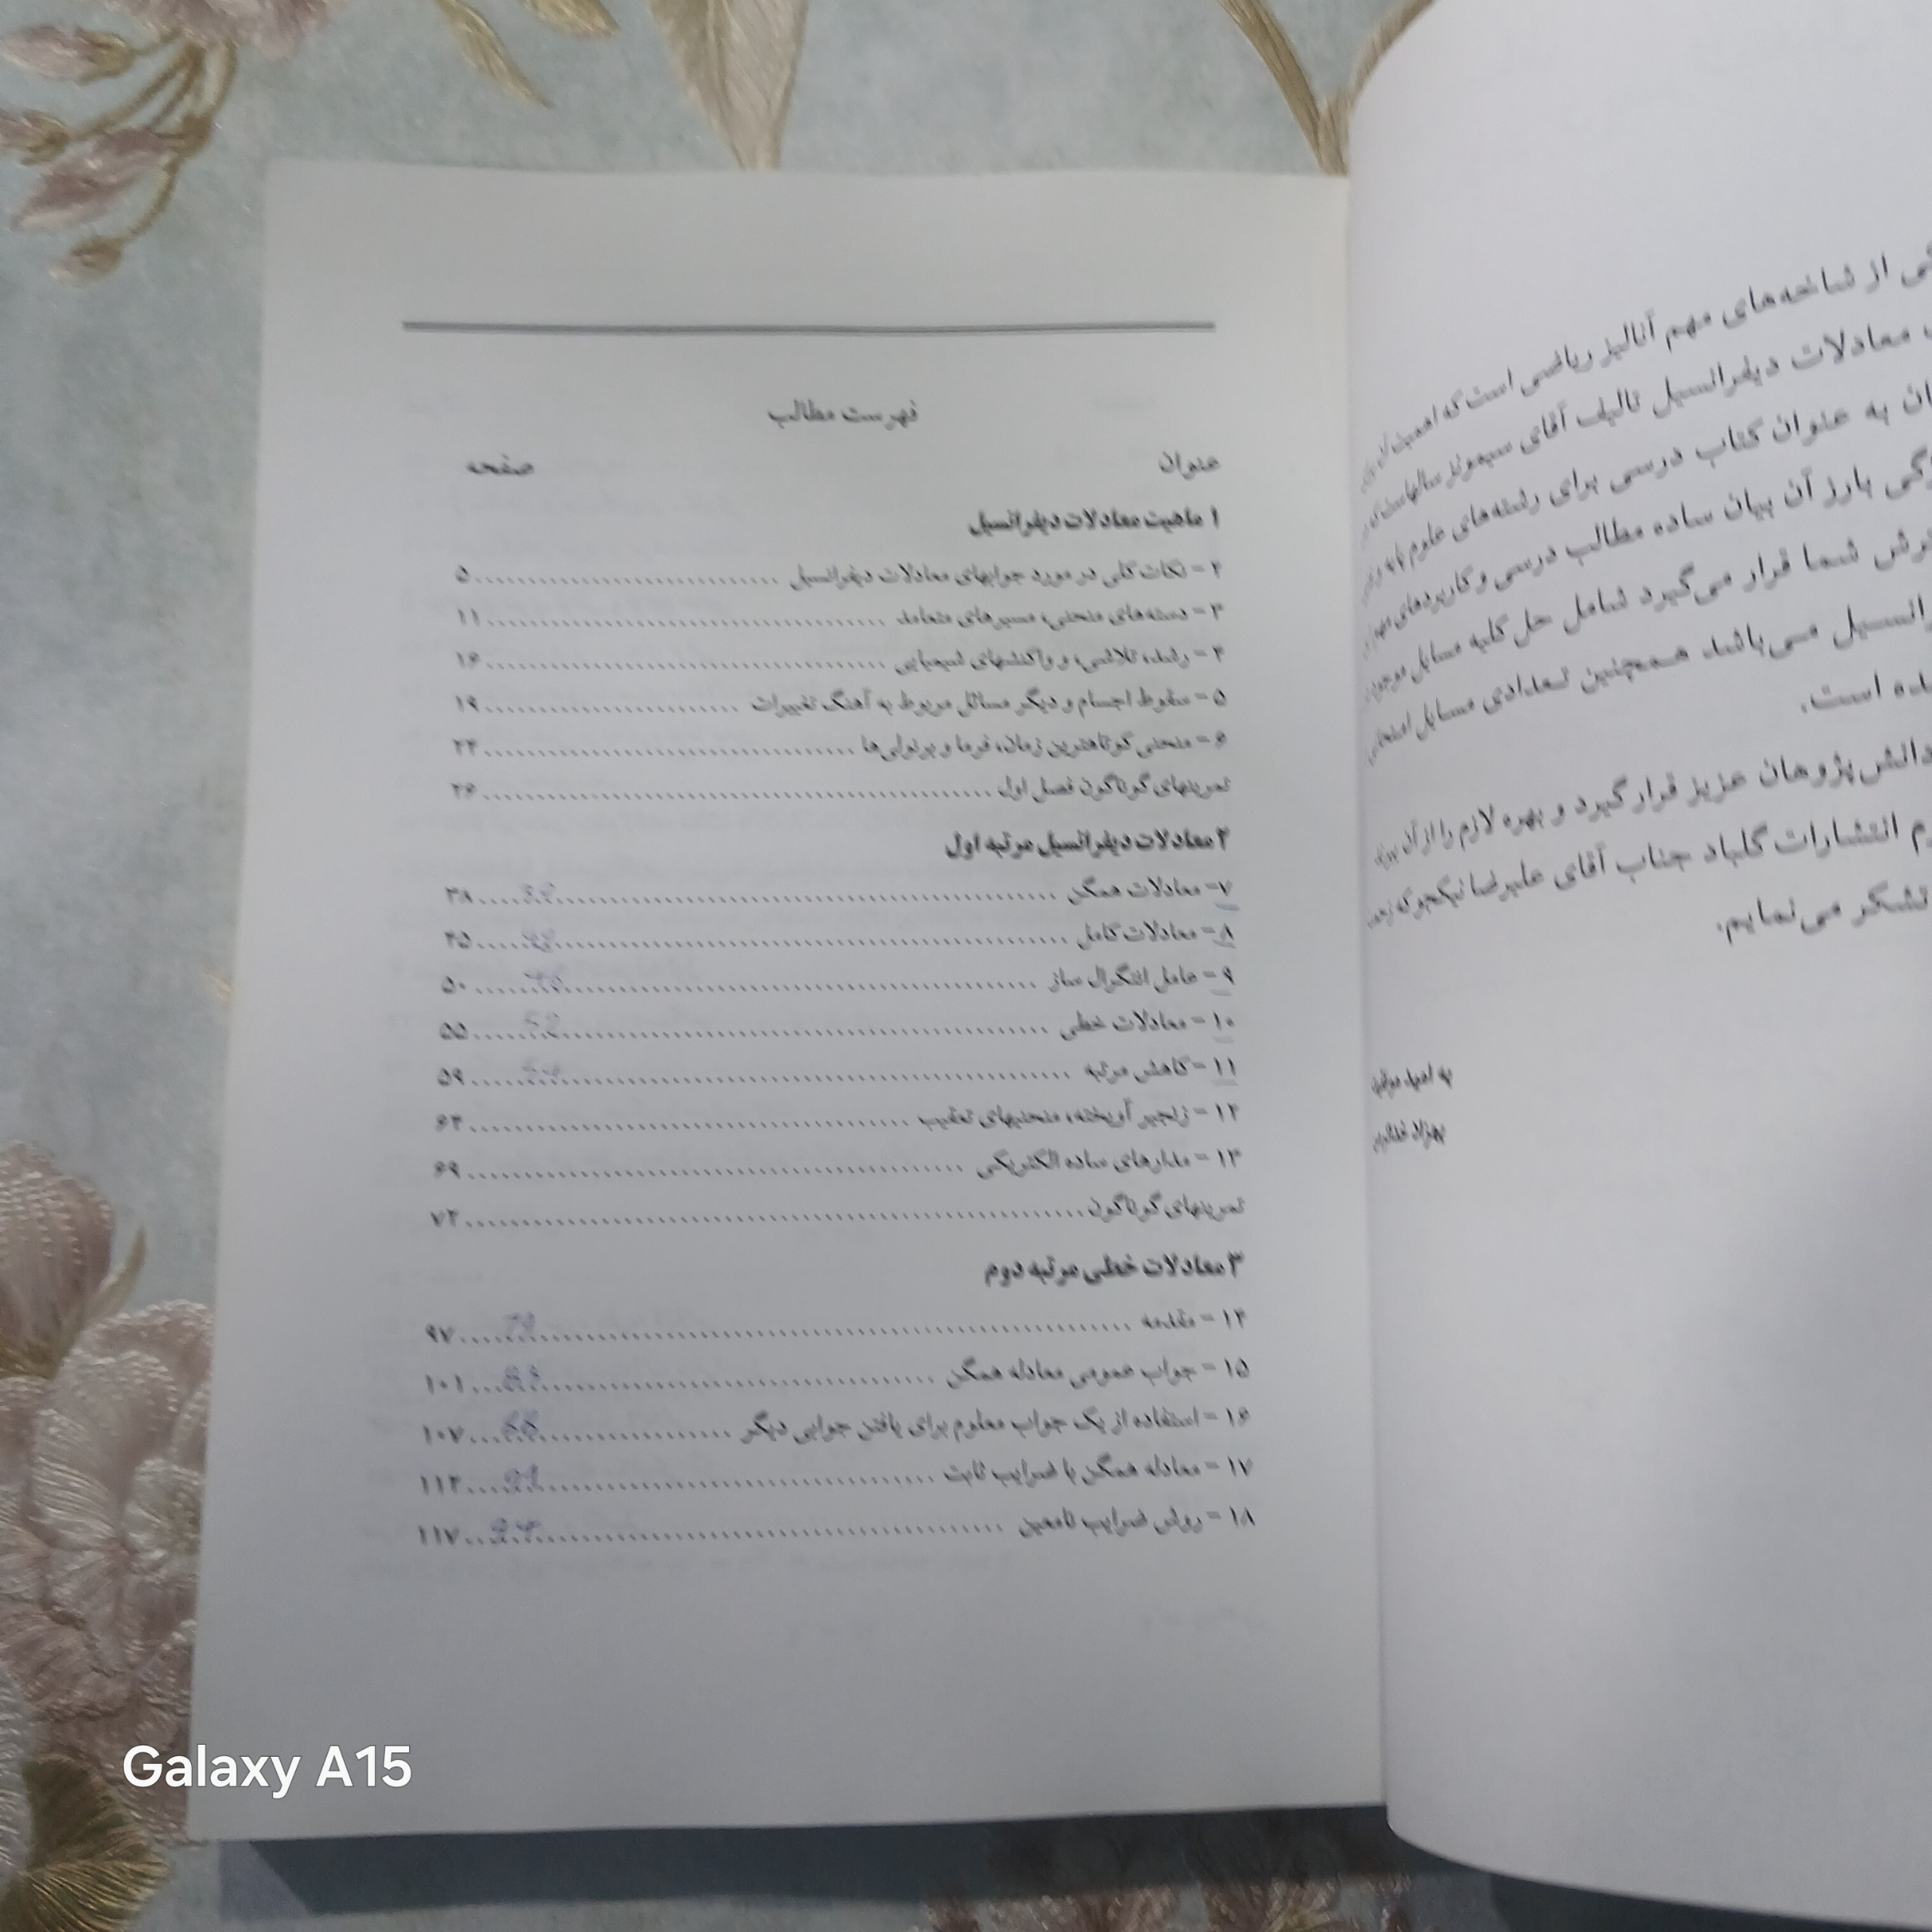 فهرست مطالب
عنوان صفحه
۱ ماهیت معادلات دیفرانسیل
۲ - نکات کلی در مورد جوابهای معادلات دیفرانسیل ........ ۵
۳ - دسته‌های منحنی، مسیرهای متعامد ........ ۱۱
۴ - رشد، تلاشی، و واکنشهای شیمیایی ........ ۱۶
۵ - سقوط اجسام و دیگر مسائل مربوط به آهنگ تغییرات ........ ۱۹
۶ - منحنی کوتاهترین زمان، فرما و برنولی‌ها ........ ۲۴
تمرینهای گوناگون فصل اول ........ ۲۶
۲ معادلات دیفرانسیل مرتبه اول
۷- معادلات همگن ........ ۳۸
۸- معادلات کامل ........ ۴۵
۹ - عامل انتگرال ساز ........ ۵۰
۱۰ - معادلات خطی ........ ۵۵
۱۱ - کاهش مرتبه ........ ۵۹
۱۲ - زنجیر آویخته، منحنیهای تعقیب ........
۱۳ - مدارهای ساده الکتریکی ........ ۶۹
تمرینهای گوناگون ........
۳ معادلات خطی مرتبه دوم
۱۴ - مقدمه ........ ۹۷
۱۵ - جواب عمومی معادله همگن ........ ۱۰۱
۱۶ - استفاده از یک جواب معلوم برای یافتن جوابی دیگر ........ ۱۰۷
۱۷ - معادله همگن با ضرایب ثابت ........ ۱۱۲
۱۸ - روش ضرایب نامعین ........ ۱۱۷
از شاخه‌های مهم آنالیز ریاضی است که اهمیت آن
معادلات دیفرانسیل تالیف آقای سیمونز سالهاست
به عنوان کتاب درسی برای رشته‌های علوم پایه و
بارز آن بیان ساده مطالب درسی و کاربردهای مهم
شما قرار می‌گیرد شامل حل کلیه مسایل موجود
می‌باشد همچنین تعدادی مسایل امتحانی
است.
دانش پژوهان عزیز قرار گیرد و بهره لازم را از آن ببرند
انتشارات گلباد جناب آقای علیرضا نیکجو که
تشکر می‌نمایم.
به امید موفقیت
بهزاد
Galaxy A15